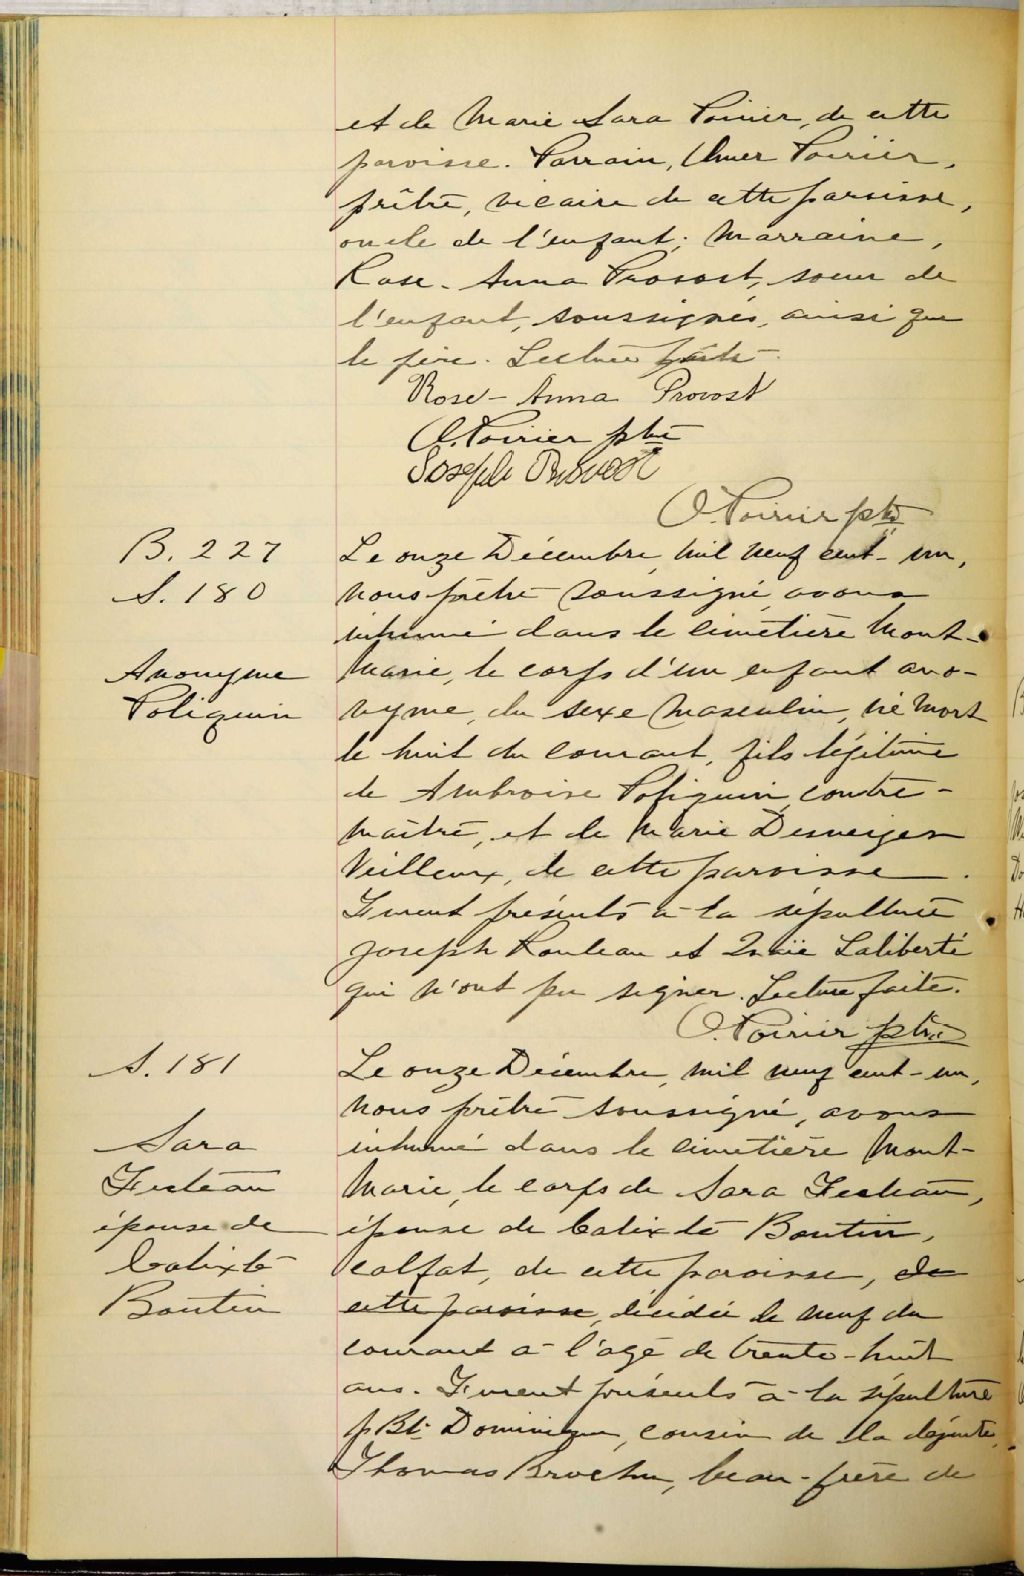 et de Marie Sara Poirier, de cette
paroisse. Parrain, Omer Poirier,
prêtre, vicaire de cette paroisse,
oncle de l'enfant; Marraine,
Rose-Anna Provost, soeur de
l'enfant, soussignés, ainsi que
le père. Lecture faite.
Rose-Anna Provost
O. Poirier ptre
Joseph Provost
O. Poirier ptre
B. 227
S. 180
Anonyme
Poliquin
Le onze Décembre, mil neuf cent-un,
nous prêtre soussigné, avons
inhumé dans le cimetière Mont-
Marie, le corps d'un enfant ano-
nyme, du sexe masculin, né mort
le huit du courant, fils légitime
de Ambroise Poliquin, contre-
maître, et de Marie Desneiges
Veilleux, de cette paroisse.
Furent présents à la sépulture
Joseph Rouleau et Laliberté
qui n'ont pu signer. Lecture faite.
O. Poirier ptre
S. 181
Sara
Fecteau
épouse de
Calixte
Boutin
Le onze Décembre, mil neuf cent-un,
nous prêtre soussigné, avons
inhumé dans le cimetière Mont-
Marie, le corps de Sara Fecteau,
épouse de Calixte Boutin,
calfat, de cette paroisse, de
cette paroisse, décédée le neuf du
courant à l'âge de trente-huit
ans. Furent présents à la sépulture
Bte Dominique, cousin de la défunte,
Thomas Brochu, beau-frère de